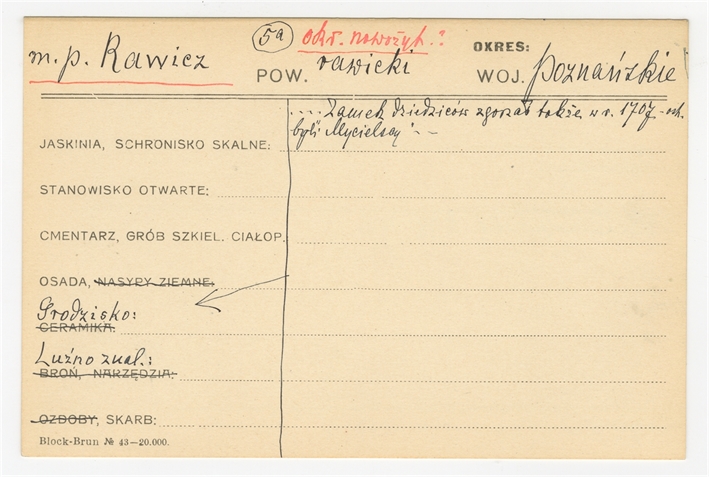 5a okr. nowożyt.?
m. p. Rawicz
OKRES:
POW. rawicki WOJ. poznańskie
.... Zamek dziedziców zgorzał także w r. 1707
byli Mycielscy
JASKINIA, SCHRONISKO SKALNE:
STANOWISKO OTWARTE:
CMENTARZ, GRÓB SZKIEL. CIAŁOP.
OSADA, NASYPY ZIEMNE:
Grodzisko:
CERAMIKA:
Luźno znal.:
BROŃ, NARZĘDZIA:
OZDOBY, SKARB:
Block-Brun № 43—20.000.